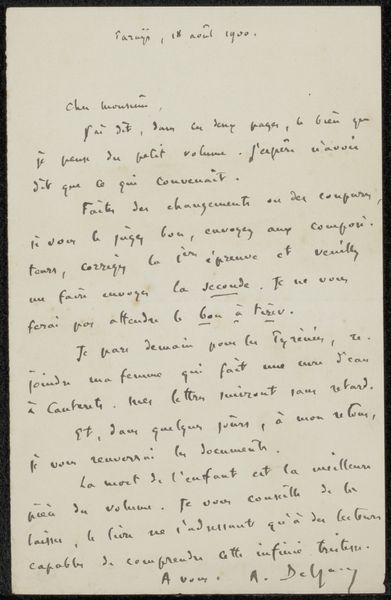 18 août 1900.
Cher monsieur,
J'ai dit, dans ces deux pages, le bien que
je pense du petit volume. J'espère n'avoir
dit que ce qui convenait.
Faites des changements ou des coupures,
si vous le jugez bon, envoyez aux composi-
teurs, corrigez la 1ère épreuve et veuillez
me faire envoyer la seconde. Je ne vous
ferai pas attendre le bon à tirer.
Je pars demain pour les Pyrénées, re-
joindre ma femme qui fait une cure d'eau
à Cauterets. Mes lettres suivront sans retard.
Et, dans quelques jours, à mon retour,
je vous renverrai les documents.
La mort de l'enfant est la meilleure
pièce du volume. Je vous conseille de la
laisser, le livre ne s'adressant qu'à des lecteurs
capables de comprendre cette infinie tristesse.
A vous. A.